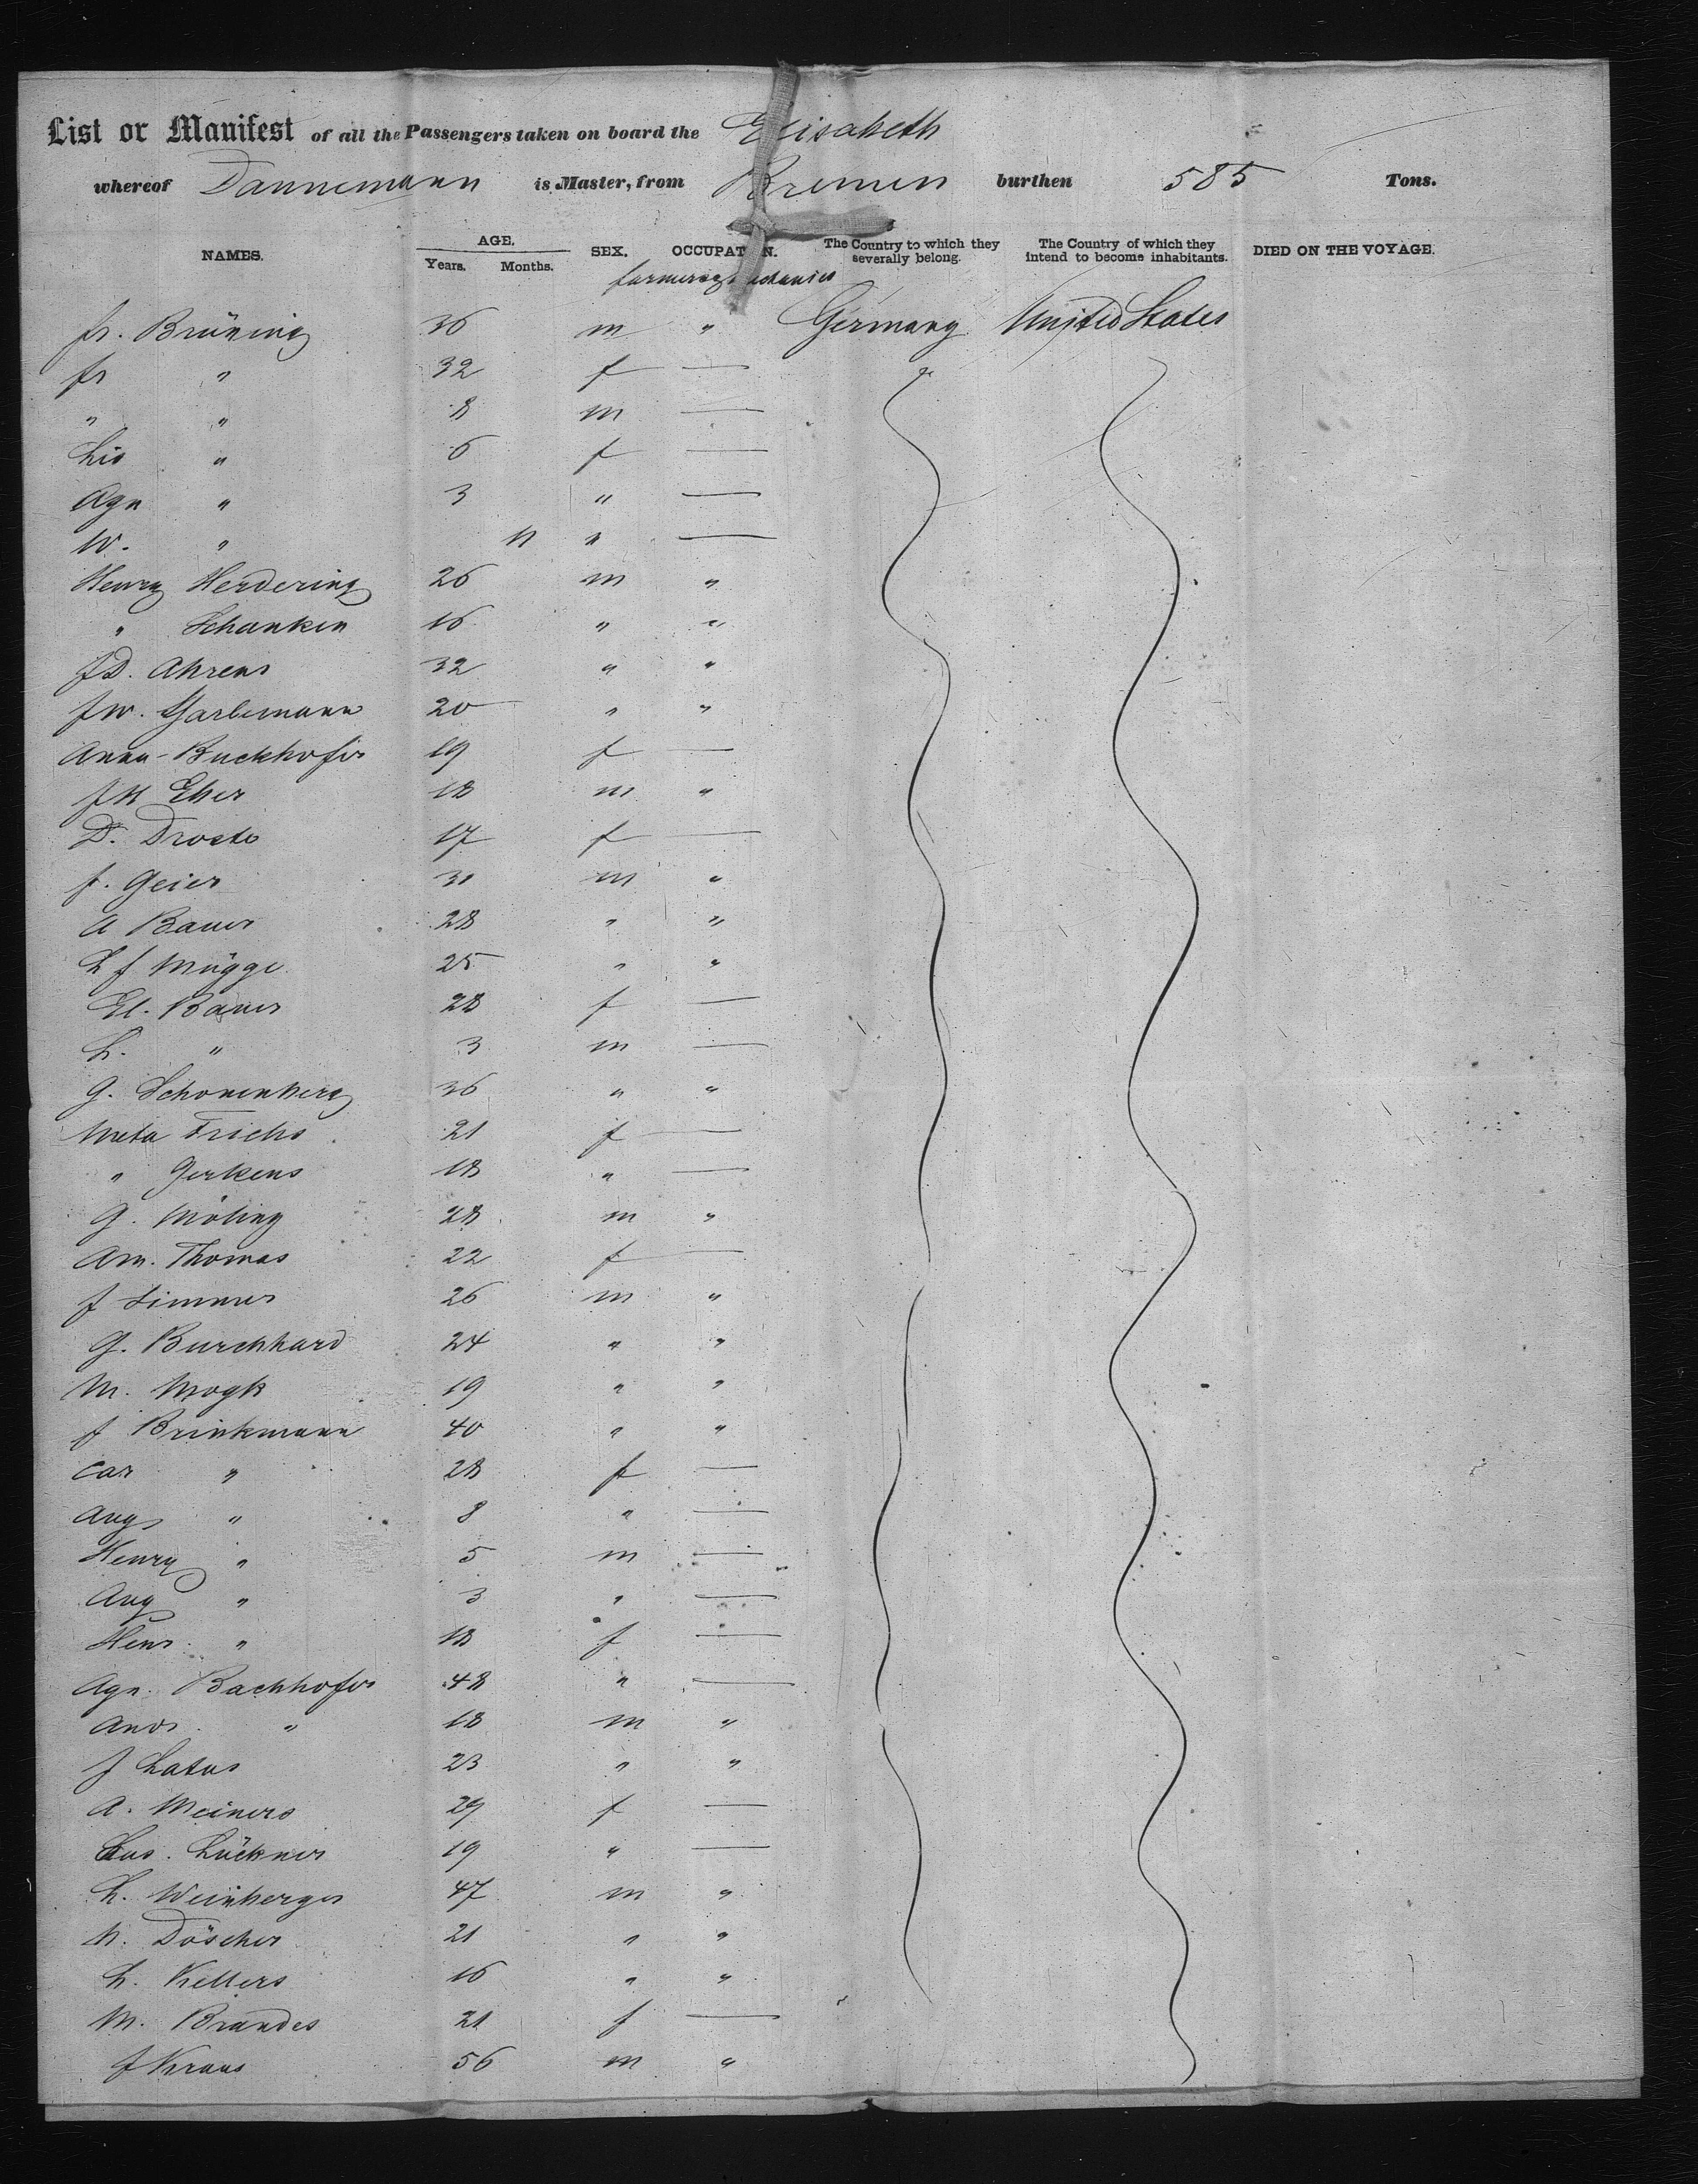 List or Manifest of all the Passengers taken on board the Elisabeth
whereof Dannemann is Master, from Bremen burthen 585 Tons.
NAMES. AGE. Years. Months. SEX. OCCUPAT N. The Country to which they severally belong. The Country of which they intend to become inhabitants. DIED ON THE VOYAGE.
farmers
fr. Brüning 36 m " Germany United States
fr " 32 f —
" " 8 m —
Lis " 6 f —
Agn " 3 " —
W. " 11 " —
Henry Herdering 26 m "
" Schanken 16 " "
JD. Ahrens 32 " "
JW. Garlemann 20 " "
Anna Buckhofer 19 f —
JH Eher 18 m "
D. Droste 17 f —
f. Geier 30 m "
A Bauer 28 " "
L f Mügge 25 " "
El. Bauer 28 f —
L. " 3 m —
G. Schonenberg 36 " "
Meta Frichs 21 f —
" Gerkens 18 " —
G. Möling 28 m "
Am. Thomas 22 f —
J Simmer 26 m "
G. Burchhard 24 " "
M. Mogk 19 " "
f Brinkmann 40 " "
Car " 28 f —
Aug " 8 " —
Henry " 5 m —
Aug " 3 " —
Henr. " 18 f —
Agn. Bachhofer 48 " —
Andr. " 18 m "
J Latus 23 " "
A. Meiners 29 f —
Lückner 19 " —
L. Weinberger 47 m "
H. Döscher 21 " "
L. Kellers 16 " "
M. Brandes 21 f —
J Kraus 56 m "